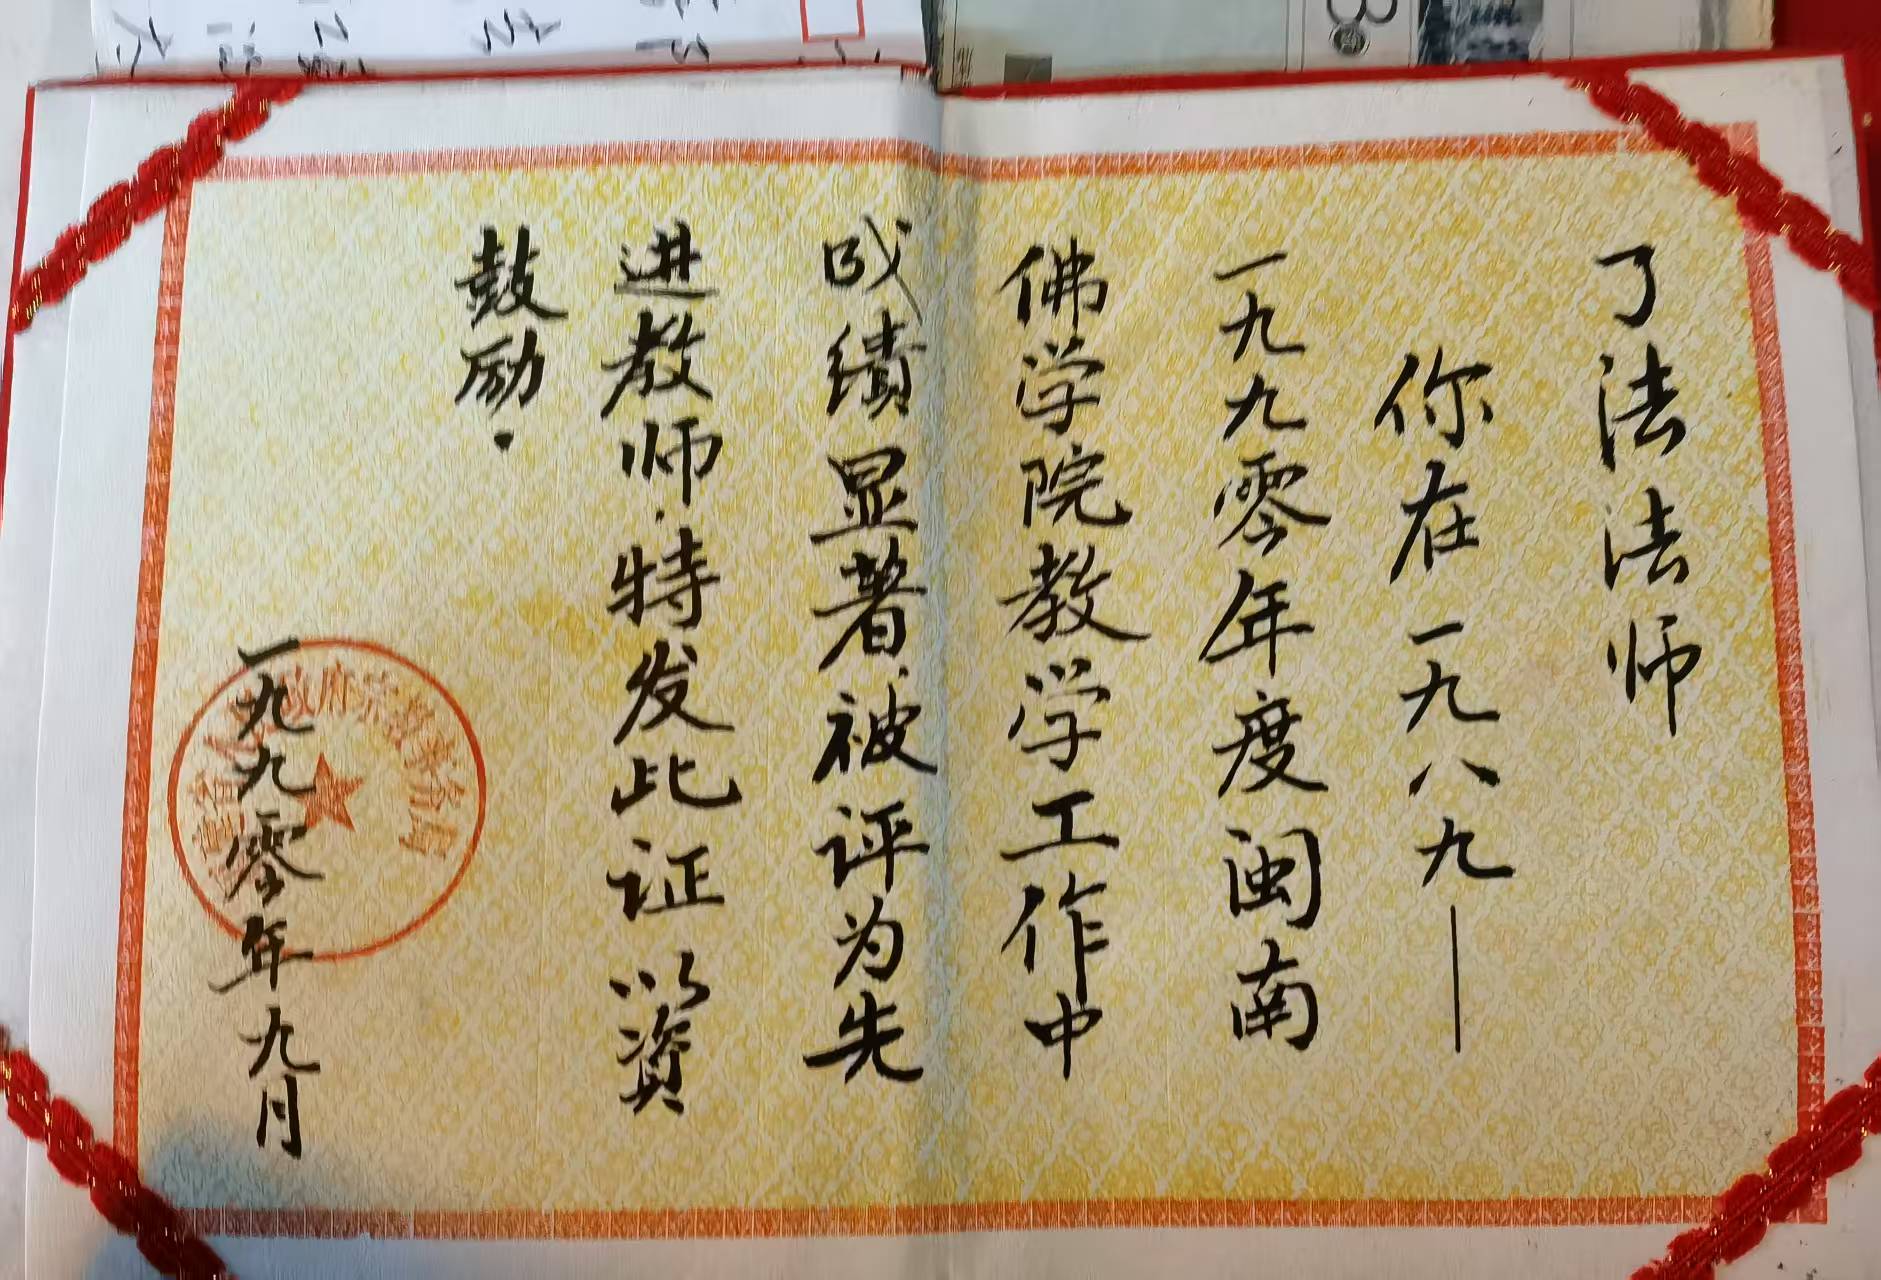 了法法师
你在一九八九——
一九九零年度闽南
佛学院教学工作中
成绩显著，被评为先
进教师，特发此证以资
鼓励．
一九九零年九月
政府宗教事务局